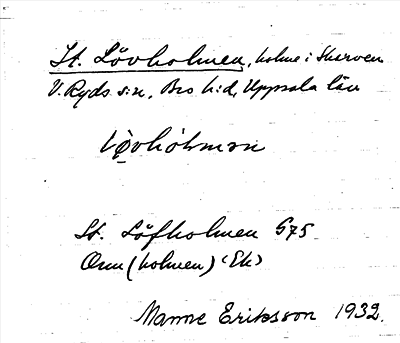 St. Lövholmen, holme i Skarven
V. Ryds s:n, Bro h:d, Uppsala län
Løvhòlmən
St. Löfholmen G75
Omn (holmen) 'Ek'
Manne Eriksson 1932.